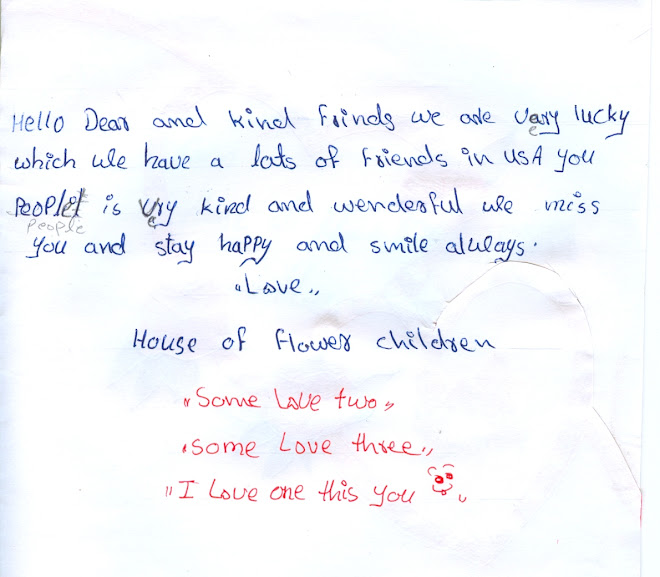 Hello Dear and kind Frinds we are very lucky
which we have a lats of Friends in USA you
people is very kind and wenderful we miss
people
you and stay happy and smile always.
"Love"
House of flower children
"Some Love two"
"some Love three"
"I Love one this you"